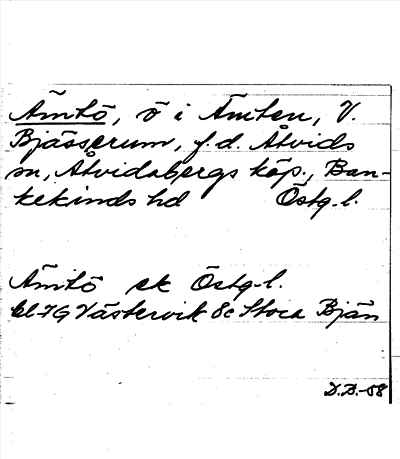 Ämtö, ö i Ämten, V.
Bjässerum, f.d. Åtvids
sn, Åtvidabergs köp., Ban-
kekinds hd Östg. l.
Ämtö ek Östg. l.
bl 7G Västervik 8c Stora Bjän
D.D.-58